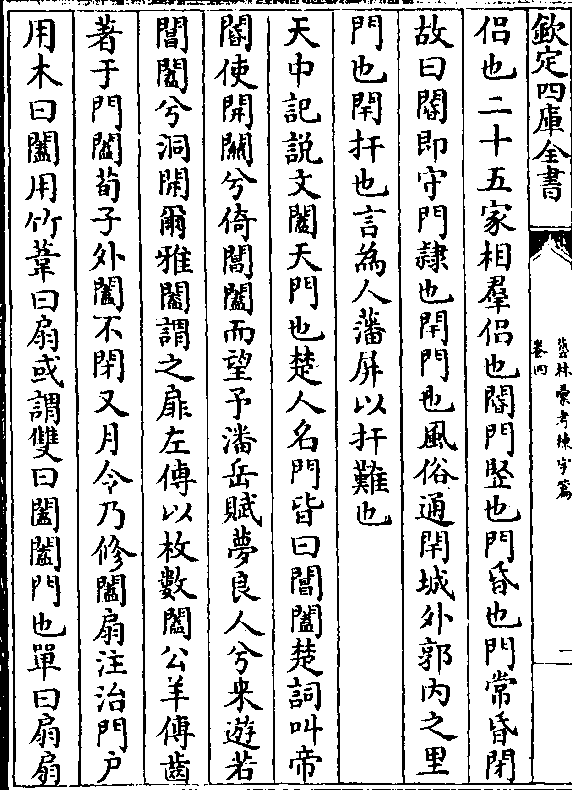 欽定四庫全書
藝林彙考棟宇篇
卷四
二
侣也二十五家相羣侣也閽門竪也門昏也門常昏閉
故曰閽即守門隷也閈門也風俗通閈城外郭内之里
門也閈扞也言為人藩屏以扞難也
天中記説文闔天門也楚人名門皆曰閶闔楚詞叫帝
閽使開闗兮倚閶闔而望予潘岳賦夢良人兮来遊若
閶闔兮洞開爾雅闔謂之扉左傳以枚數闔公羊傳齒
著于門闔荀子外闔不閉又月令乃修闔扇注治門户
用木曰闔用竹葦曰扇或謂雙曰闔闔門也單曰扇扇